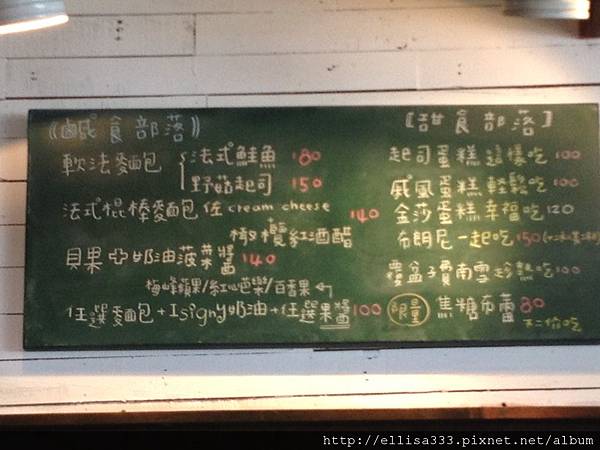 《鹹食部落》
軟法麵包 法式鮭魚 180
野菇起司 150
法式棍棒麥面包 佐 cream cheese 140
橄欖紅酒醋
貝果 奶油菠菜醬 140
梅峰蘋果/紅心芭樂/百香果
任選麥面包+Isigny奶油+任選果醬 100
【甜食部落】
起司蛋糕 這樣吃 100
戚風蛋糕 輕鬆吃 100
金莎蛋糕 幸福吃 120
布朗尼 一起吃 150
覆盆子費南雪 趁熱吃 100
限量 焦糖布蕾 80
不二價吃
http://ellisa333.pixnet.net/album